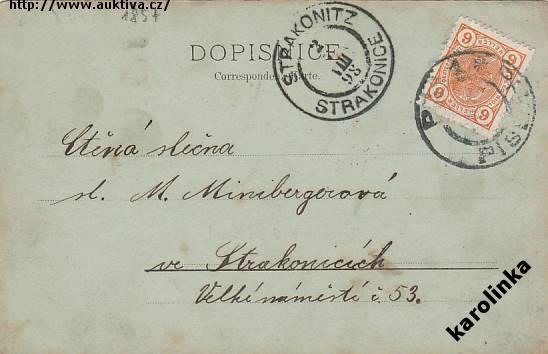 http://www.auktiva.cz/
1857
DOPISNICE.
Correspondenz-Karte.
STRAKONITZ
STRAKONICE
6
6
6
6
Ctěná slečna
sl. M. Minibergerová
ve Strakonicích
Velké náměstí č. 53.
karolinka